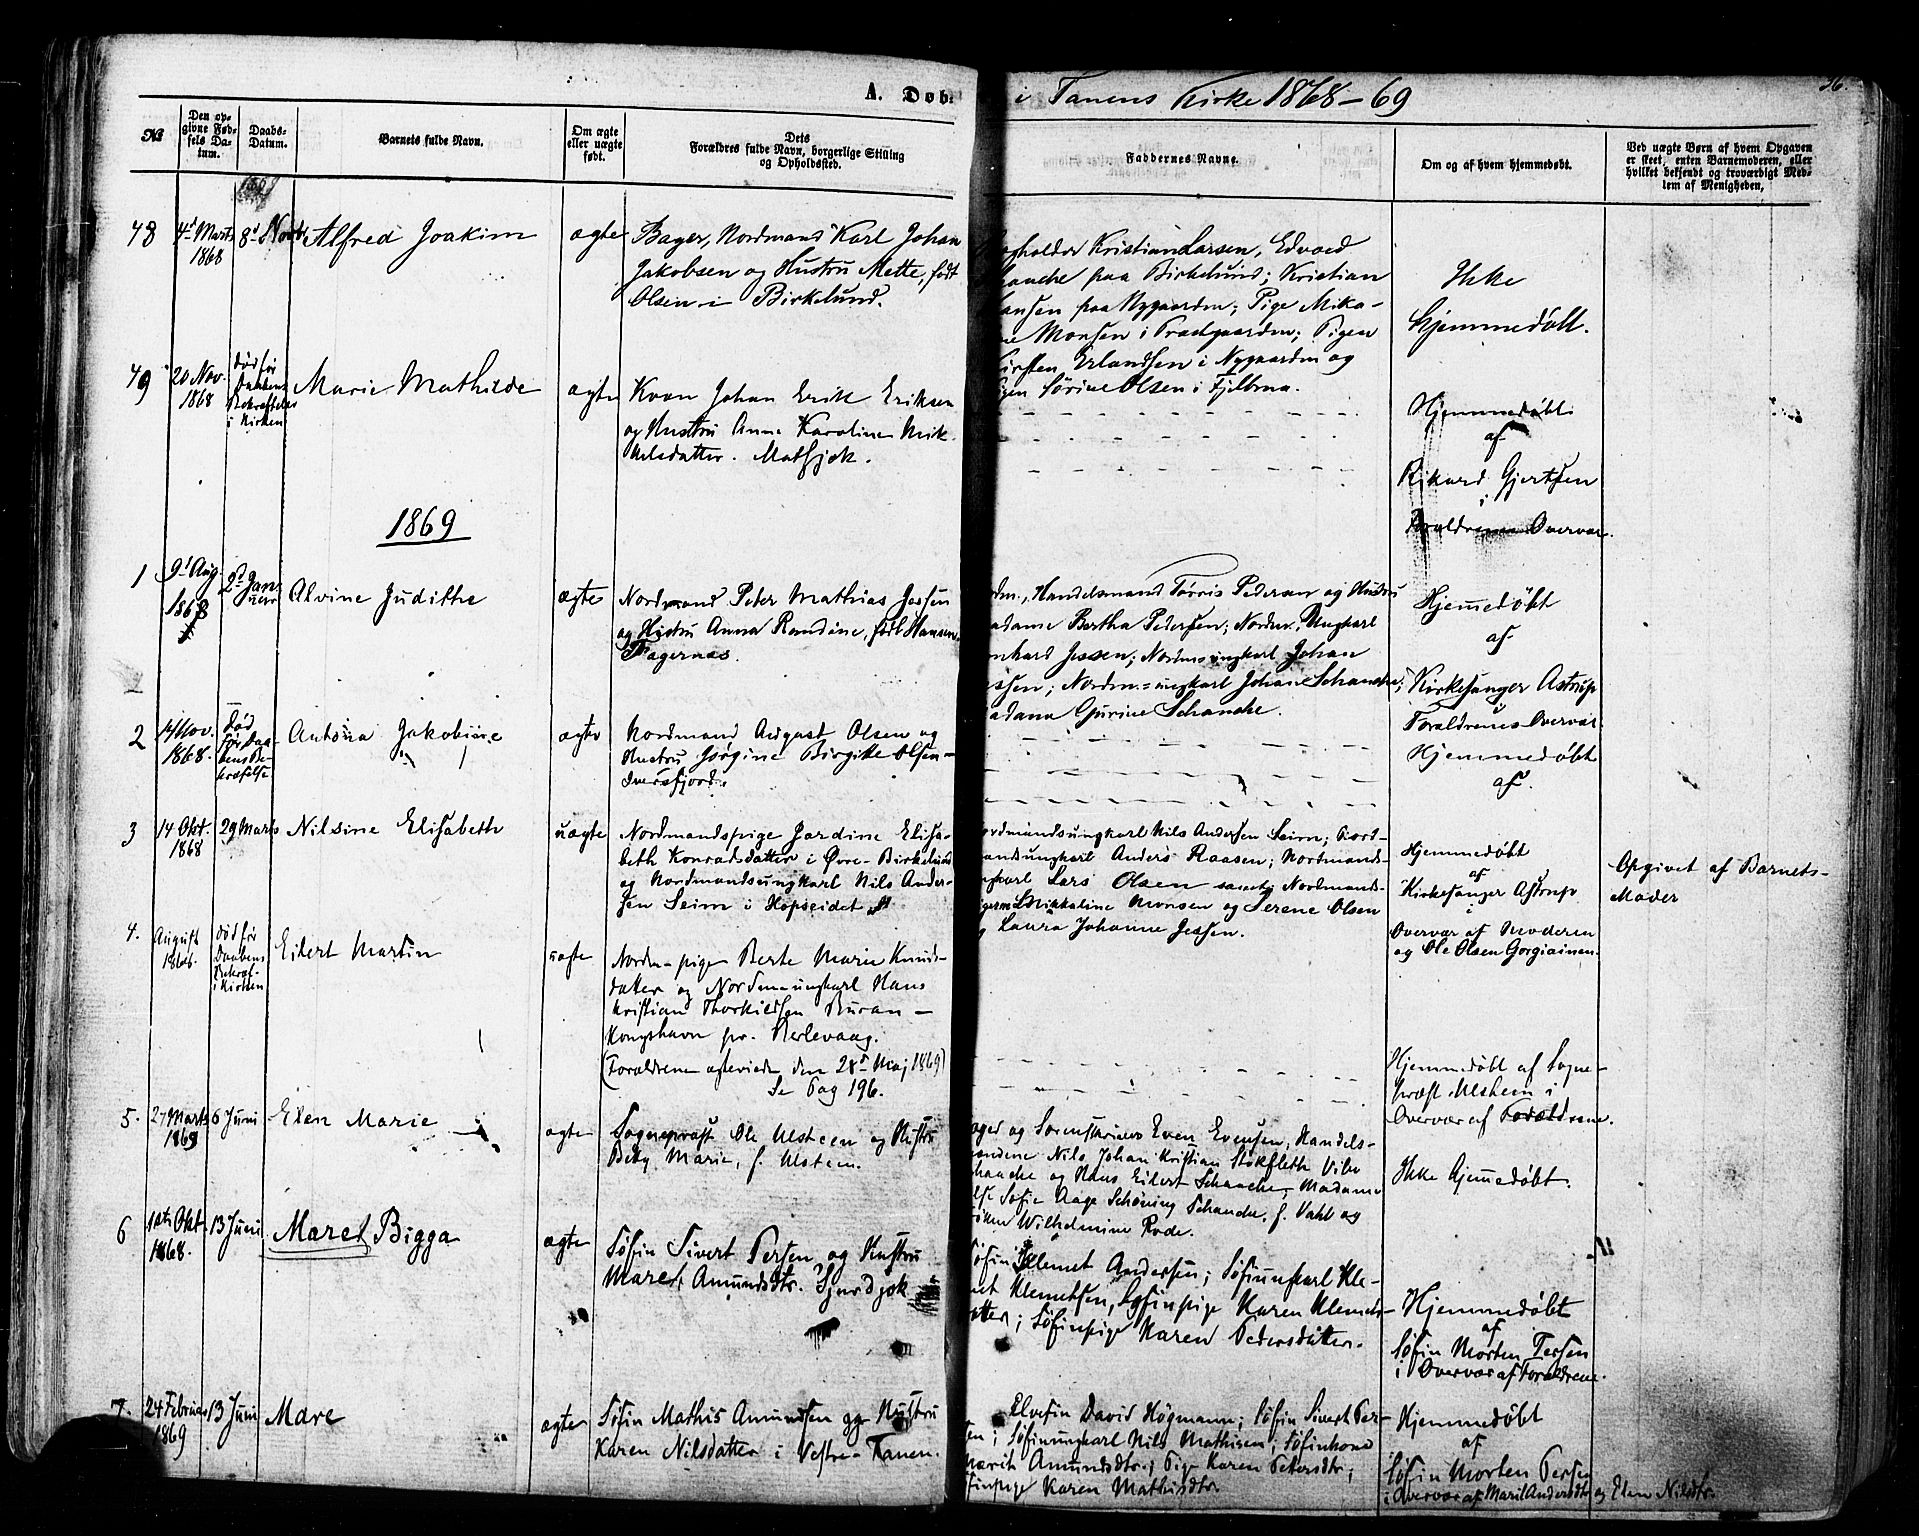 A. Døb.
i Tanens Kirke 1868-69
36.
No
Den op-
givne Fød-
sels Da-
tum.
Daabs-
Datum.
Barnets fulde Navn.
Om ægte
eller uægte
født.
Dets
Forældres fulde Navn, borgerlige Stilling
og Opholdssted.
Faddernes Navne.
Om og af hvem hjemmedøbt.
Ved uægte Børn af hvem Opgaven
er skeet, enten Barnemoderen, eller
hvilket bekjendt og troværdigt Med-
lem af Menigheden.
48
4d Marts
1868
8d Novb
Alfred Joakim
ægte
Bager, Nordmand Karl Johan
Jakobsen og Hustru Mette, født
Olsen i Birkelund.
Kristian Larsen, Edvard
paa Birkelund; Kristian
paa Nygaarden; Pige Mika-
Monsen i Præstgaarden; Pigen
Erlandsen i Nygaarden og
Sørine Olsen i Fjelbma.
Ikke
hjemmedøbt.
49
20 Nov.
1868
død før
Daabens
Bekræftelse
i Kirken
Marie Mathilde
ægte
Kvæn Johan Erik Eriksen
og Hustru Anne Karoline Mik-
kelsdatter. Matsjok.
Hjemmedøbt
af
Rikard Gjertsen
i
Forældrenes Overvær.
1869
1
9d Aug.
1868
2d Jan-
uar
Alvine Judithe
ægte
Nordmand Peter Mathias Jessen
og Hustru Anna Randine, født Hansen
Fagernæs.
Handelsmand Tørris Pedersen og Hustru
Bertha Pedersen; Nordm. Ungkarl
Jessen; Nordmsungkarl Johan
Nordm.=ungkarl Johan Schanche;
Gurine Schanche.
Hjemmedøbt
af
Kirkesanger Astrup
i
Forældrenes Overvær
2
14 Nov.
1868.
død
før Daa-
bens Be-
kræftelse
Antona Jakobine
ægte
Nordmand August Olsen og
Hustru Jørgine Birgitte Olsen-
Iversfjord.
Hjemmedøbt
af.
3
14 Okt.
1868
29 Marts
Nilsine Elisabeth
uægte
Nordmandspige Jardine Elisa-
beth Konradsdatter i Øvre-Birkelund
og Nordmandsungkarl Nils Ander-
sen Seim i Hopseidet
Nils Andersen Seim; Nord-
Anders Raasen; Nordmands-
Lars Olsen samt Nordmands-
Mikkaline Monsen og Serene Olsen
Laura Johanne Jessen.
Hjemmedøbt
af
Kirkesanger Astrup
i
Overvær af Moderen
og Ole Olsen Gorgiainen.
Opgivet af Barnets-
Moder
4.
August
død før
Daabens
Bekræf-
i Kirken
Eilert Martin
uægte
Nordm-pige Berte Marie Knuds-
datter og Nordm-ungkarl Hans
Kristian Thorkildsen Buran-
Kongshavn pr. Berlevaag.
(Forældrene ægteviede den 28d Maj 1869)
Se Pag 196.
Hjemmedøbt af Sogne-
præst Ulsteen i
Overvær af Forældrene.
5.
27 Marts
1869
6 Juni
Elen Marie
ægte
Sognepræst Ole Ulsteen og Hustru
Betzy Marie, f. Ulsteen.
og Sorenskriver Even Evensen, Handels-
Nils Johan Kristian Stokfleth Vibe
og Hans Eilert Schanche, Madame
Sofie Aage Schøning Schanche, f. Vahl og
Wilhelmine Rode.
Ikke hjemmedøbt.
6
1ste Okt.
1868.
13 Juni
Maret Bigga
ægte
Søfin Sivert Persen og Hustru
Maret Amundsdtr. Sjurdjok
Søfin Klemet Andersen; Søfinungkarl Kle-
Klemetsen, Søfinpige Karen Klemets-
Søfinpige Karen Pedersdatter.
Hjemmedøbt
af
Søfin Morten Persen
i Overvær af Forældrene.
7.
24 Februar
1869
13 Juni
Mare
ægte
Søfin Mathis Amundsen og Hustru
Karen Nilsdatter i Vestre-Tanen.
Elvefin David Högmann; Søfin Sivert Per-
sen; Søfinungkarl Nils Mathisen; Søfinkone
Marit Amundsdtr.; Pige Karen Petersdtr;
Karen Mathisdtr.
Hjemmedøbt
af
Søfin Morten Persen
i Overvær af Marit Andersdtr og Elen Nilsdtr.